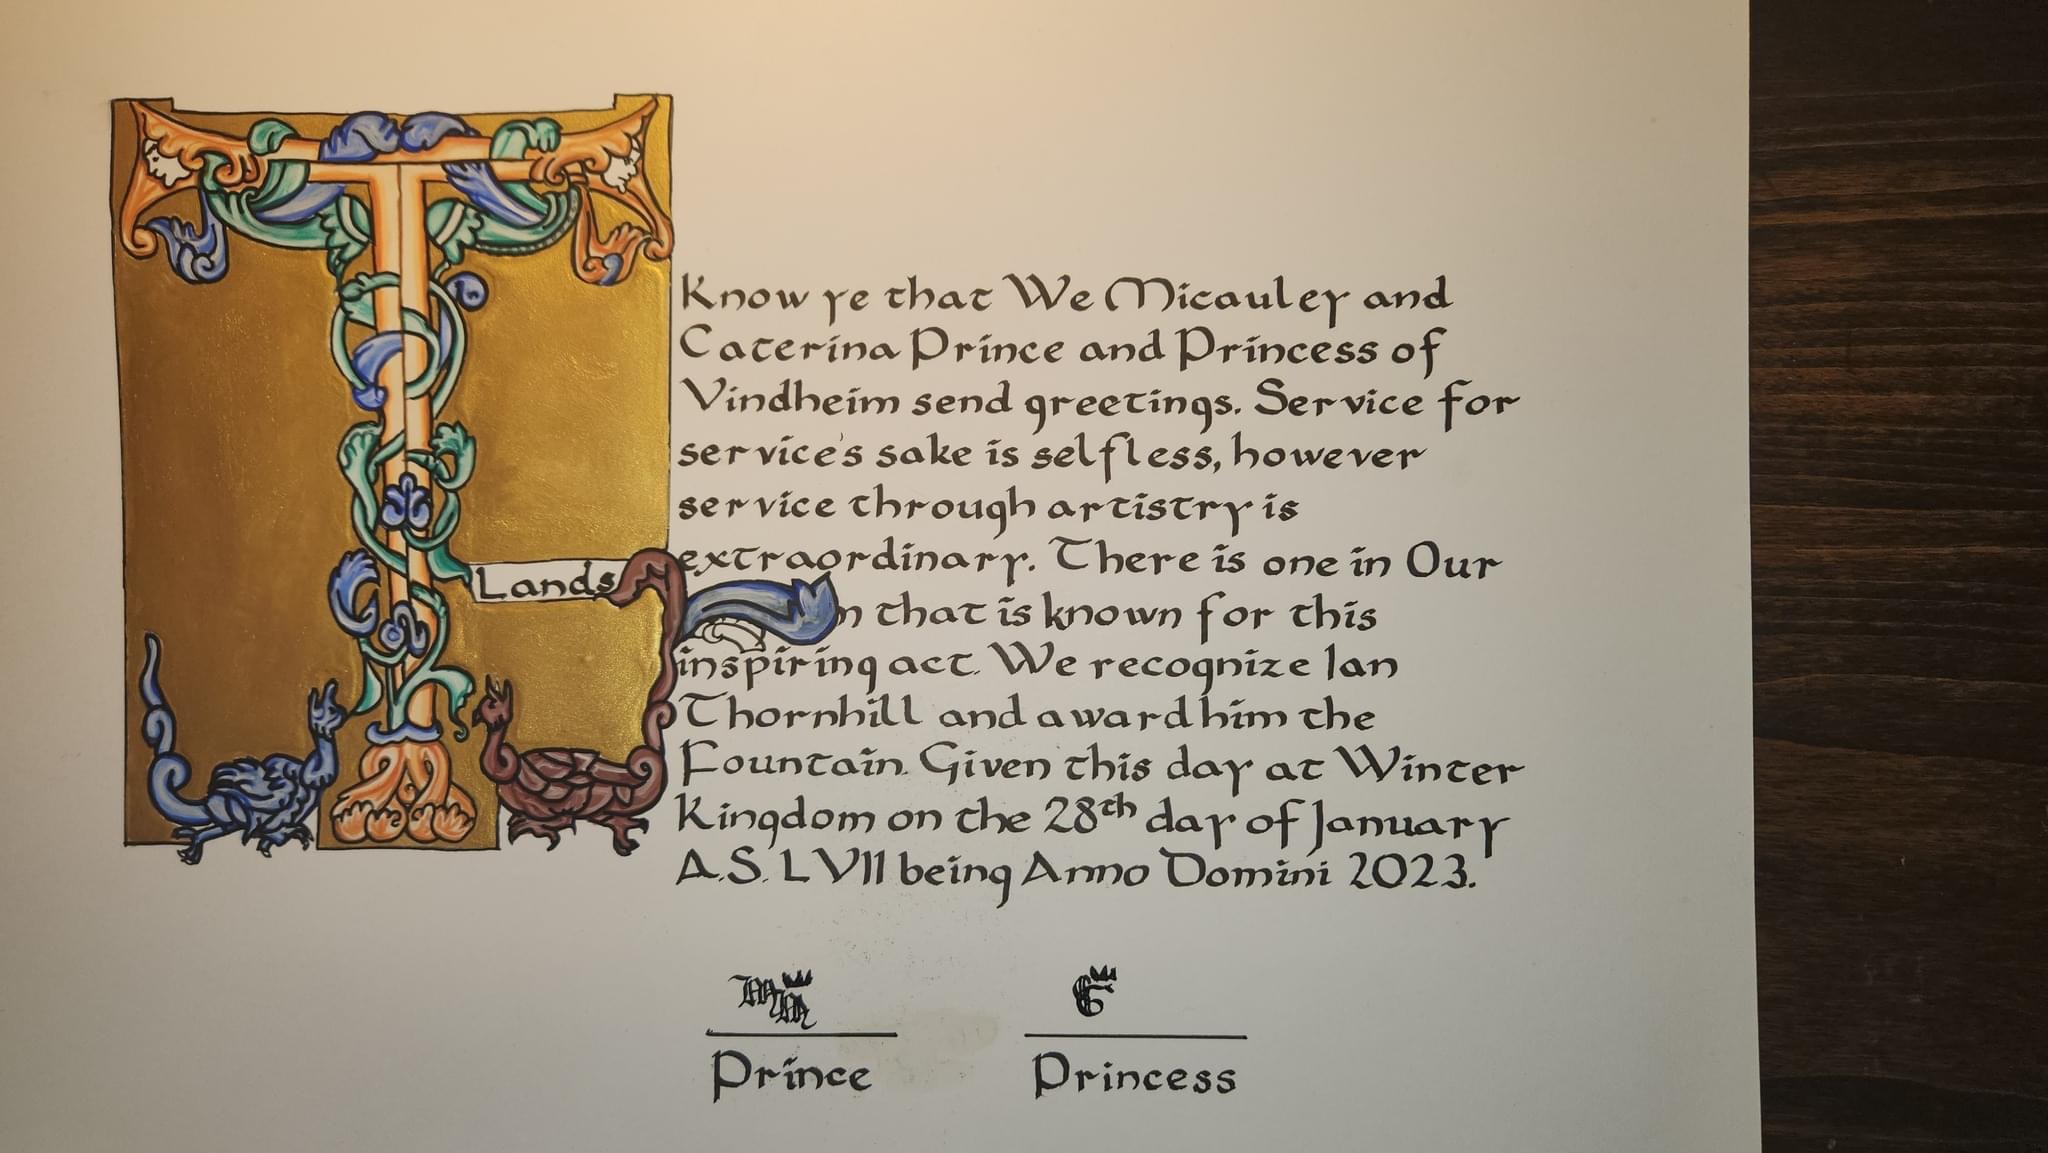 Know ye that We Micauley and
Caterina Prince and Princess of
Vindheim send greetings. Service for
service's sake is selfless, however
service through artistry is
extraordinary. There is one in Our
Lands
that is known for this
inspiring act. We recognize Ian
Thornhill and award him the
Fountain. Given this day at Winter
Kingdom on the 28th day of January
A.S. LVII being Anno Domini 2023.
Prince Princess